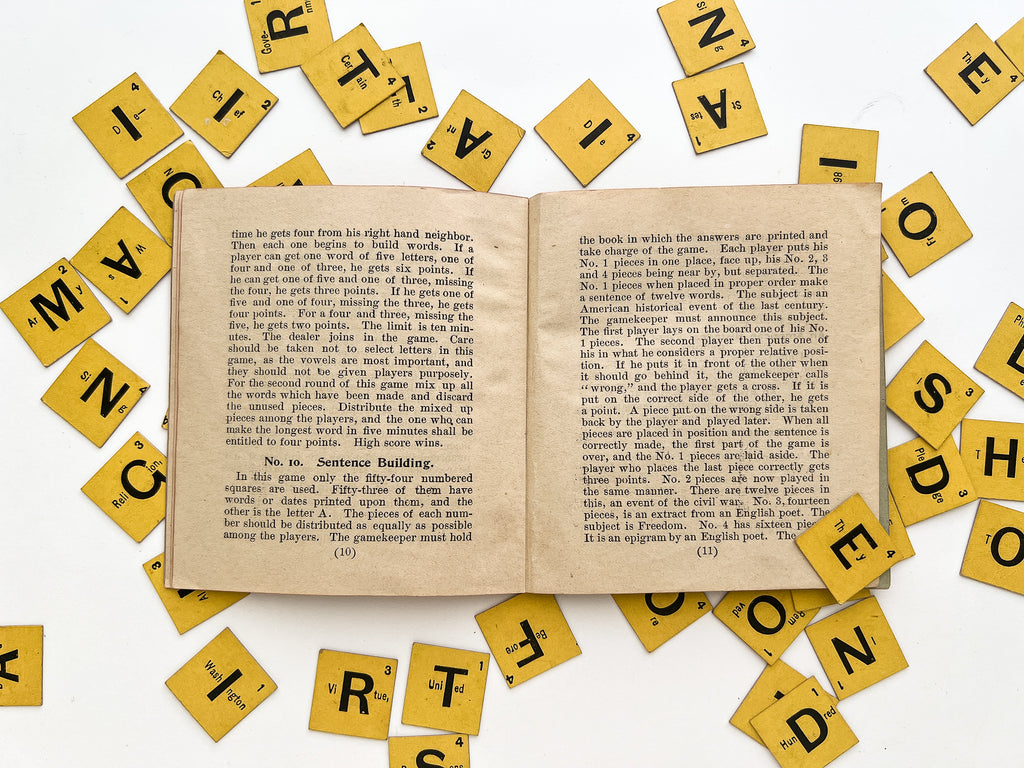 SiNg 4
ThEy 4
CerTain 4
ChIef 2
GrAnt 2
DIe 4
StAtes 1
WAs 1
ArMy 2
SiNg
ReliGion, 3
time he gets four from his right hand neighbor.
Then each one begins to build words. If a
player can get one word of five letters, one of
four and one of three, he gets six points. If
he can get one of five and one of three, missing
the four, he gets three points. If he gets one of
five and one of four, missing the three, he gets
four points. For a four and three, missing the
five, he gets two points. The limit is ten min-
utes. The dealer joins in the game. Care
should be taken not to select letters in this
game, as the vowels are most important, and
they should not be given players purposely.
For the second round of this game mix up all
the words which have been made and discard
the unused pieces. Distribute the mixed up
pieces among the players, and the one who can
make the longest word in five minutes shall be
entitled to four points. High score wins.
No. 10. Sentence Building.
In this game only the fifty-four numbered
squares are used. Fifty-three of them have
words or dates printed upon them, and the
other is the letter A. The pieces of each num-
ber should be distributed as equally as possible
among the players. The gamekeeper must hold
(10)
the book in which the answers are printed and
take charge of the game. Each player puts his
No. 1 pieces in one place, face up, his No. 2, 3
and 4 pieces being near by, but separated. The
No. 1 pieces when placed in proper order make
a sentence of twelve words. The subject is an
American historical event of the last century.
The gamekeeper must announce this subject.
The first player lays on the board one of his No.
1 pieces. The second player then puts one of
his in what he considers a proper relative posi-
tion. If he puts it in front of the other when
it should go behind it, the gamekeeper calls
“wrong,” and the player gets a cross. If it is
put on the correct side of the other, he gets
a point. A piece put on the wrong side is taken
back by the player and played later. When all
pieces are placed in position and the sentence is
correctly made, the first part of the game is
over, and the No. 1 pieces are laid aside. The
player who places the last piece correctly gets
three points. No. 2 pieces are now played in
the same manner. There are twelve pieces in
this, an event of the civil war. No. 3, fourteen
pieces, is an extract from an English poet. The
subject is Freedom. No. 4 has sixteen
It is an epigram by an English poet.
(11)
PleDge 3
ThE 4
WashIngton 1
ViRtue, 3
UniTed 1
BeFore 4
RemOved 1
HunDred 1